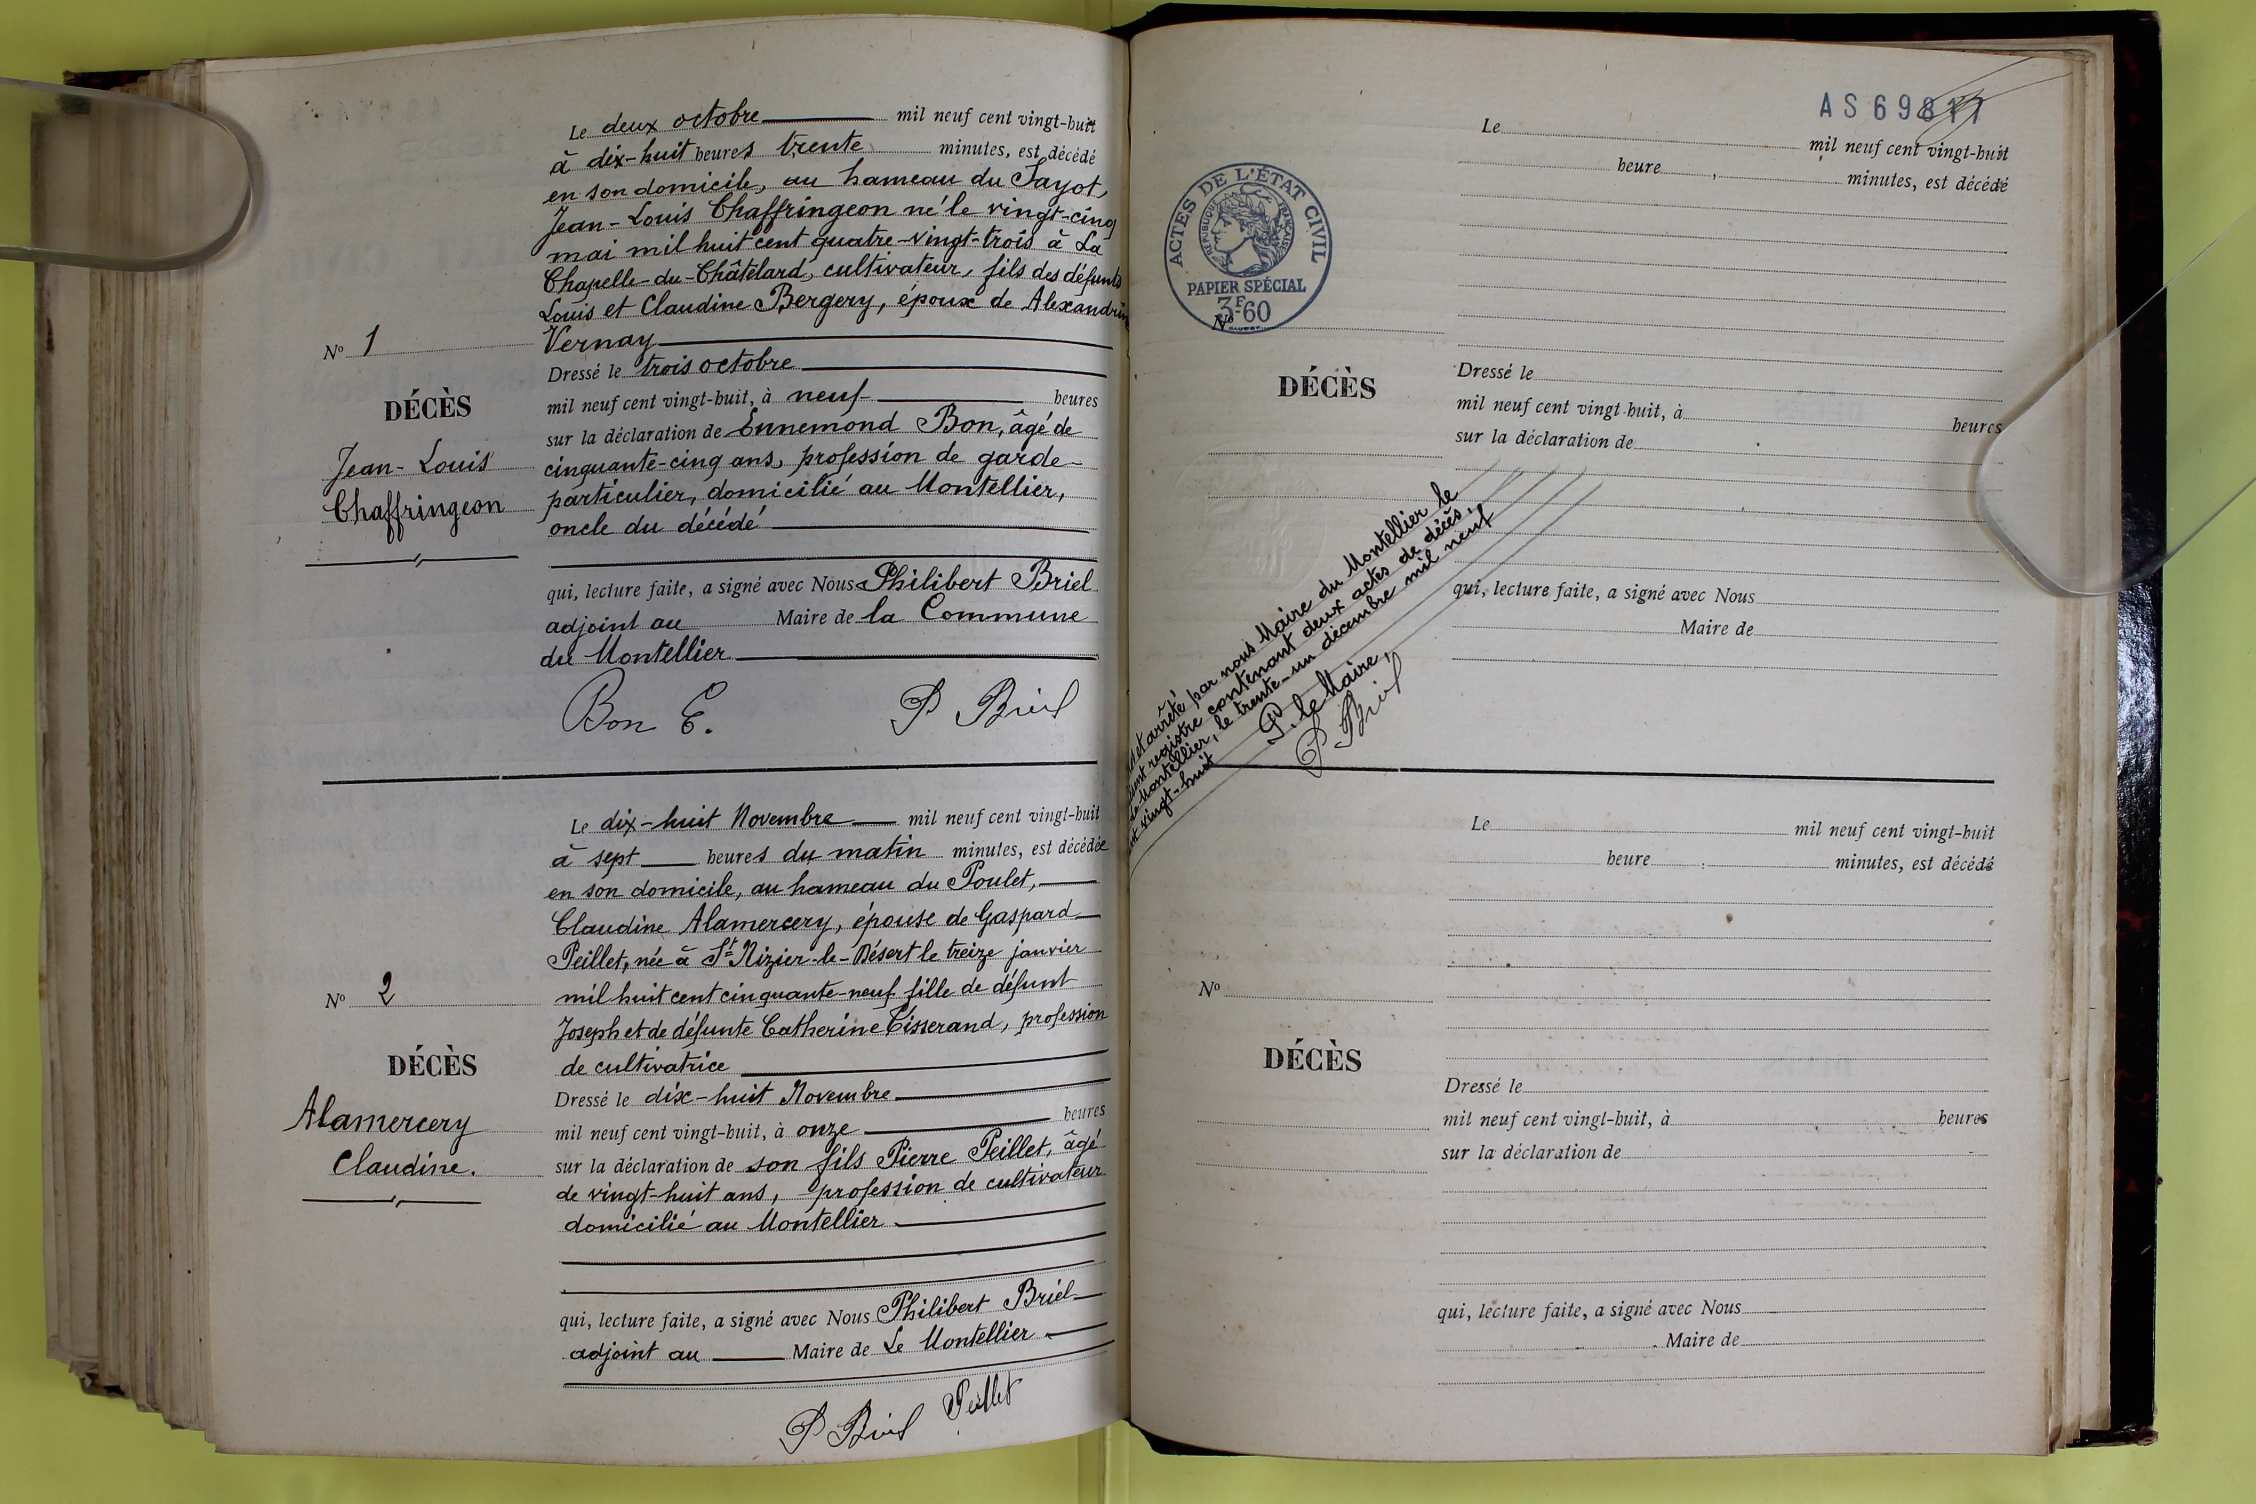 Le deux octobre mil neuf cent vingt-huit
à dix-huit heures trente minutes, est décédé
en son domicile, au hameau du Sayot,
Jean-Louis Chaffringeon né le vingt-cinq
mai mil huit cent quatre-vingt-trois à La
Chapelle-du-Châtelard, cultivateur, fils des défunts
Louis et Claudine Bergery, époux de Alexandrine
Vernay
No 1
DÉCÈS
Jean-Louis
Chaffringeon
Dressé le trois octobre
mil neuf cent vingt-huit, à neuf heures
sur la déclaration de Ennemond Bon, âgé de
cinquante-cinq ans, profession de garde-
particulier, domicilié au Montellier,
oncle du décédé
qui, lecture faite, a signé avec Nous Philibert Briel
adjoint au Maire de la Commune
du Montellier
Bon E. P Briel
Le dix-huit Novembre mil neuf cent vingt-huit
à sept heures du matin minutes, est décédée
en son domicile, au hameau du Poulet,
Claudine Alamercery, épouse de Gaspard
Peillet, née à St Nizier-le-Désert le treize janvier
mil huit cent cinquante-neuf fille de défunt
Joseph et de défunte Catherine Tisserand, profession
de cultivatrice
No 2
DÉCÈS
Alamercery
Claudine.
Dressé le dix-huit Novembre
mil neuf cent vingt-huit, à onze heures
sur la déclaration de son fils Pierre Peillet, âgé
de vingt-huit ans, profession de cultivateur
domicilié au Montellier
qui, lecture faite, a signé avec Nous Philibert Briel
adjoint au Maire de Le Montellier
P Briel Peillet
AS69817
Le mil neuf cent vingt-huit
heure minutes, est décédé
ACTES DE L'ÉTAT CIVIL
RÉPUBLIQUE FRANÇAISE
PAPIER SPÉCIAL
3F60
No
DÉCÈS
Dressé le
mil neuf cent vingt-huit, à heures
sur la déclaration de
qui, lecture faite, a signé avec Nous
Maire de
et arrêté par nous Maire du Montellier le
registre contenant deux actes de décès,
Montellier, le trente-un décembre mil neuf
vingt-huit
P. le Maire,
P Briel
Le mil neuf cent vingt-huit
heure minutes, est décédé
No
DÉCÈS
Dressé le
mil neuf cent vingt-huit, à heures
sur la déclaration de
qui, lecture faite, a signé avec Nous
Maire de